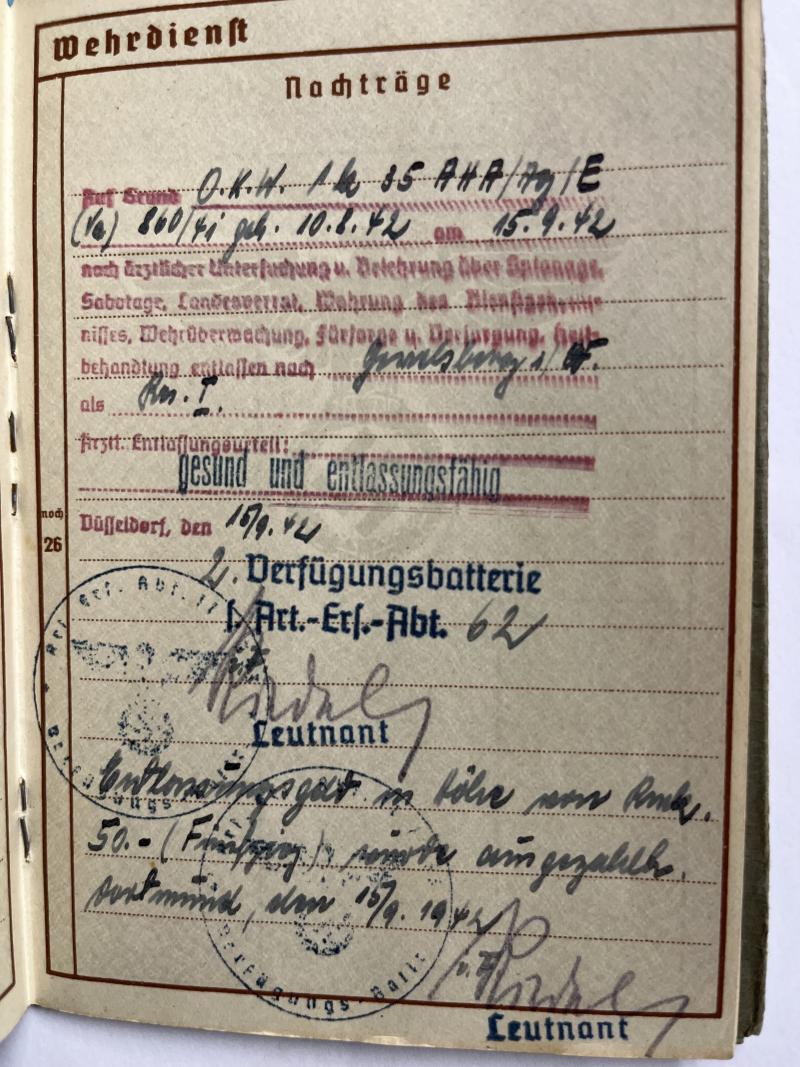 Wehrdienst
Nachträge
Auf Grund O.K.W. 35 AHA/Ag/E
(Va) 860/41 geh. 10.8.42 am 15.9.42
nach ärztlicher Untersuchung u. Belehrung über Spionage,
Sabotage, Landesverrat, Wahrung des Dienstgeheim-
nisses, Wehrüberwachung, Fürsorge u. Versorgung, Heil-
behandlung entlassen nach Gevelsberg i/W.
als Res. I.
Ärztl. Entlassungsurteil:
gesund und entlassungsfähig
noch
26
Düsseldorf, den 15/9.42
2. Verfügungsbatterie
l. Art.-Ers.-Abt. 62
Riedel
Leutnant
Entlassungsgeld in Höhe von
50.- (Fünfzig) wurde ausgezahlt.
Dortmund, den 15/9.1942
Riedel
Leutnant
Art. Ers. Abt.
Verfügungs-Battr.
Verfügungs-Battr.